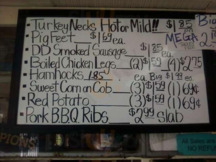 Turkey Necks Hot or Mild!! $1.85
Pig Feet $1.69 ea. MEGA
DD Smoked Sausages $
Boiled Chicken Legs (2) $1.59 (4) $2.75
Ham hocks 1.85 ea Big $1.99 ea
Sweet Corn on Cob (3) $1.59 (1) 69¢
Red Potato (3) $1.59 (1) 69¢
Pork BBQ Ribs $2.99 Slab